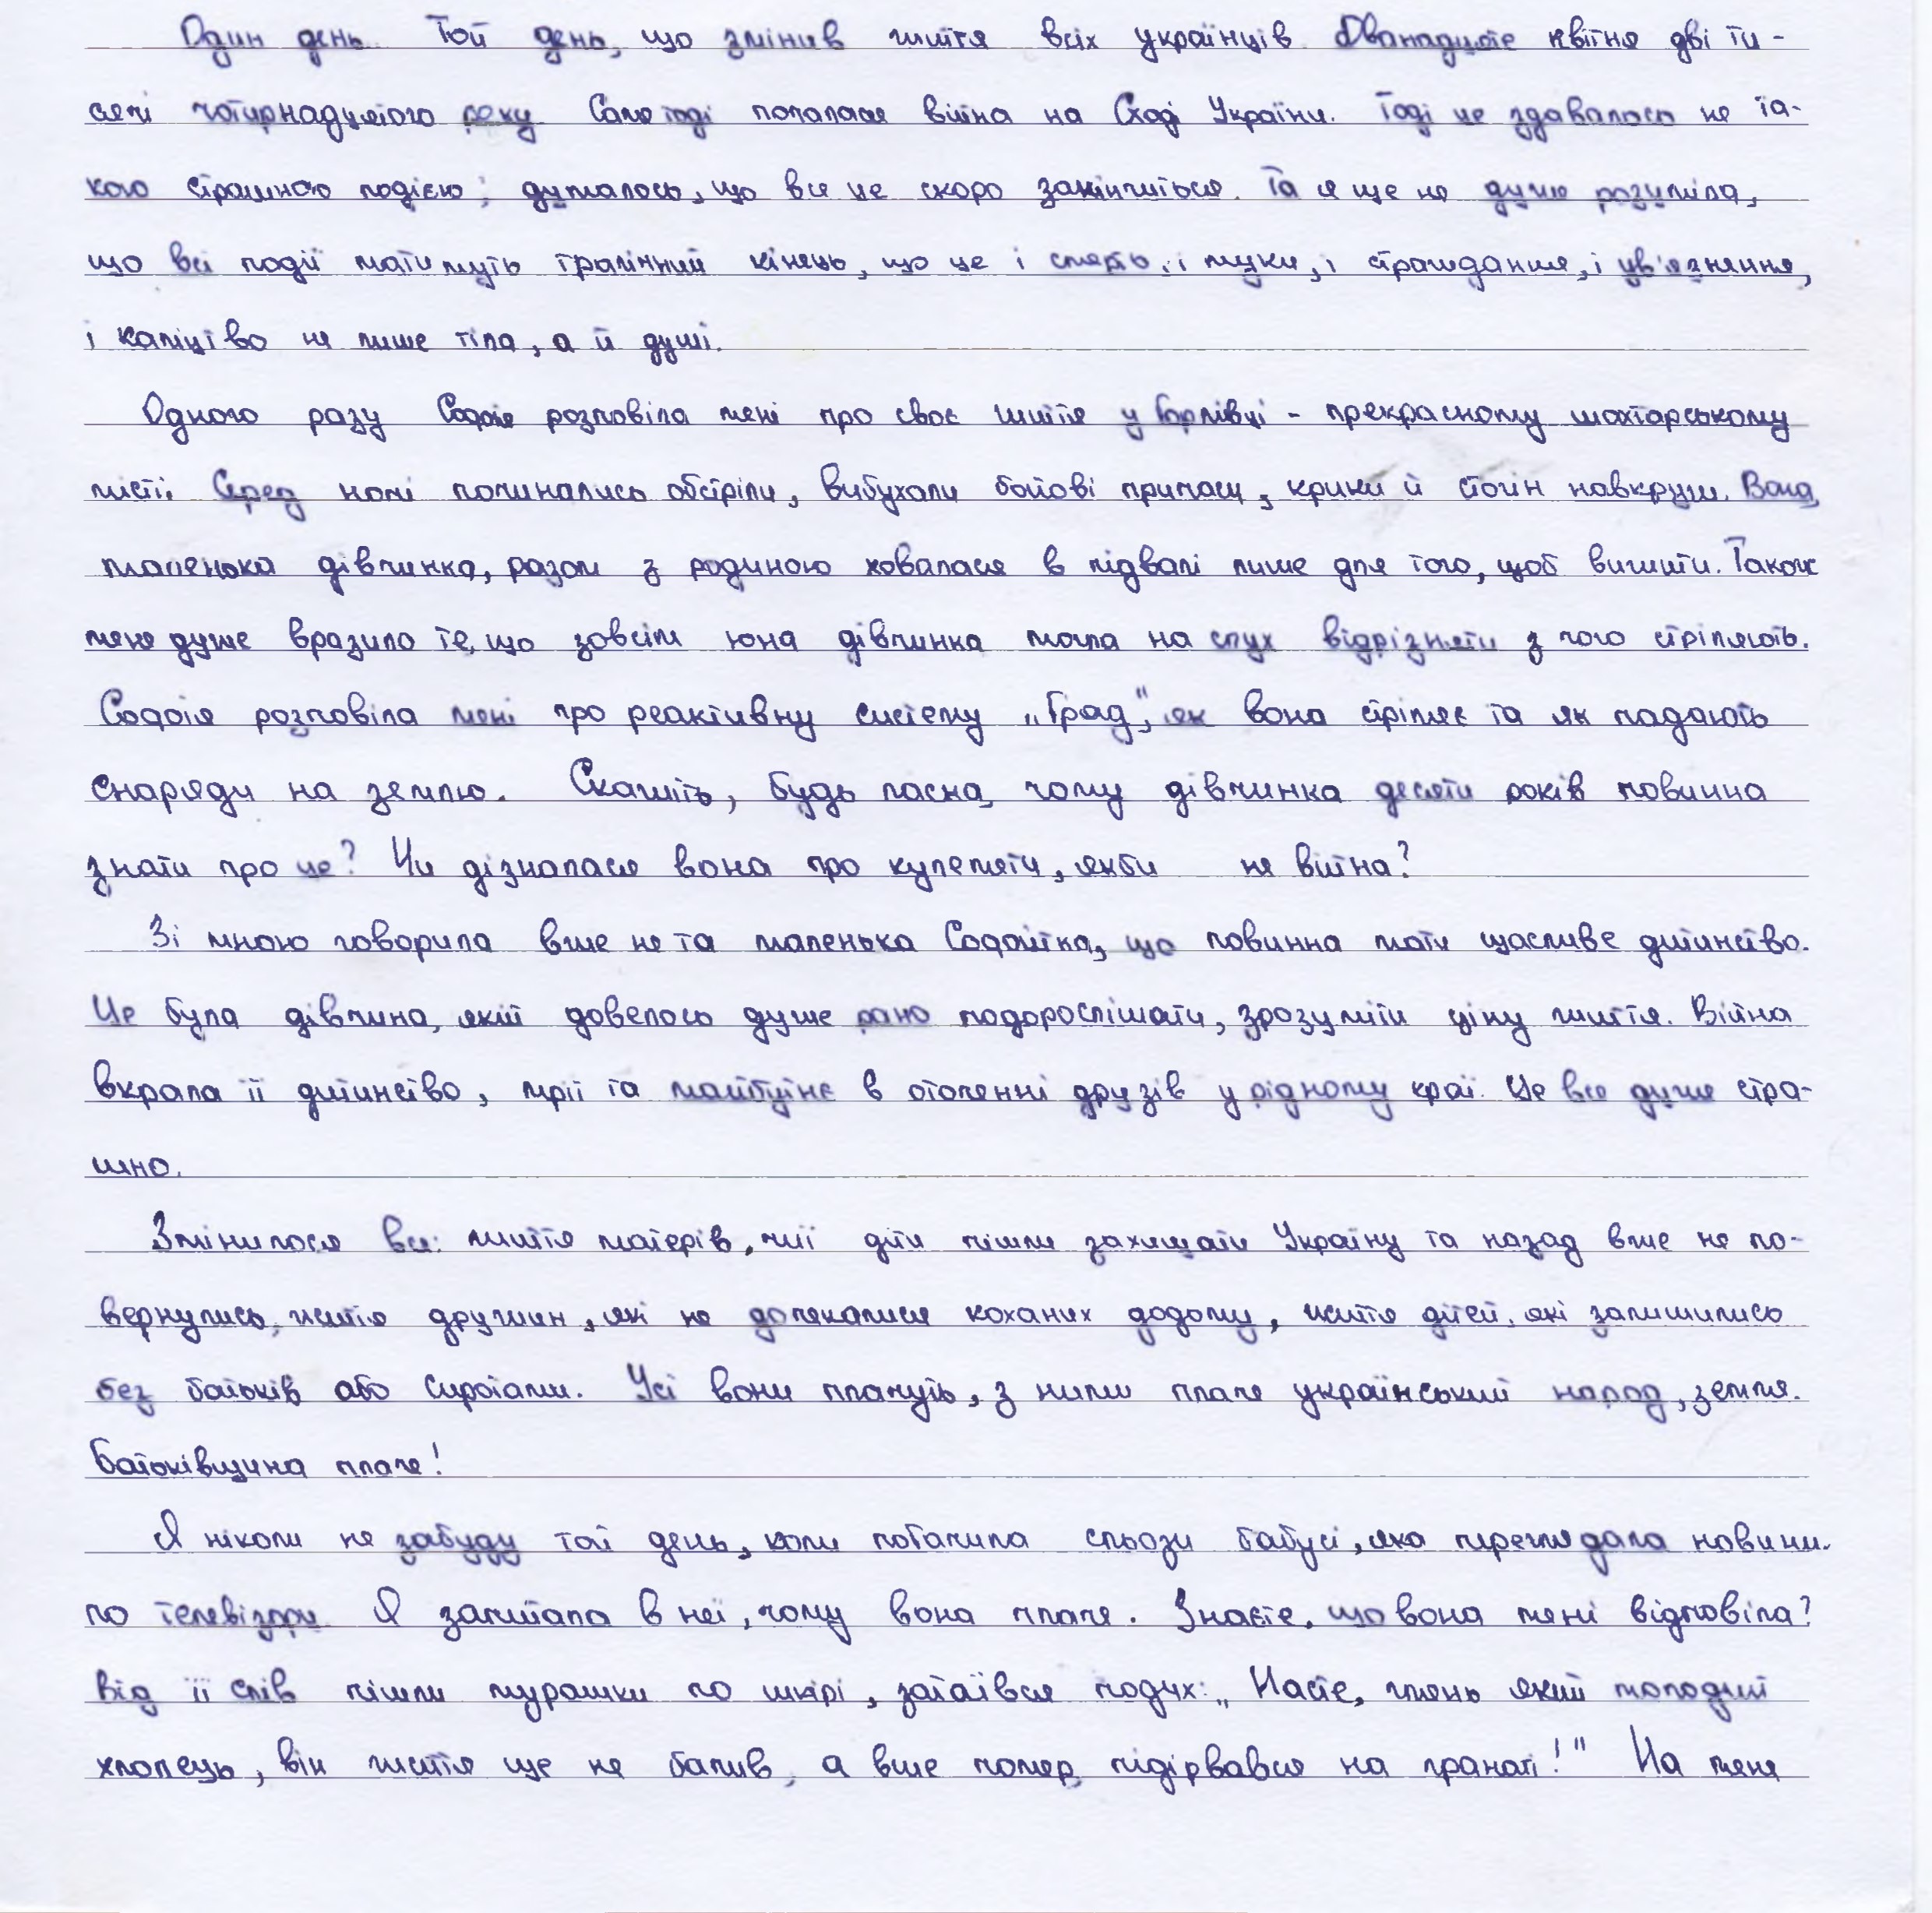 Один день. Той день, що змінив життя всіх українців. Дванадцяте квітня дві ти-
сячі чотирнадцятого року. Саме тоді почалася війна на Сході України. Тоді це здавалось не та-
кою страшною подією; думалось, що все це скоро закінчиться. Та я ще не дуже розуміла,
що всі події матимуть трагічний кінець, що це і смерть, і муки, і страждання, і ув'язнення,
і каліцтво не лише тіла, а й душі.
Одного разу Софія розповіла мені про своє життя у Горлівці - прекрасному шахтарському
місті. Серед ночі починались обстріли, вибухали бойові припаси, крики й стогін навкруги. Вона,
маленька дівчинка, разом з родиною ховалася в підвалі лише для того, щоб вижити. Також
мене дуже вразило те, що зовсім юна дівчинка могла на слух відрізняти з чого стріляють.
Софія розповіла мені про реактивну систему „Град", як вона стріляє та як падають
снаряди на землю. Скажіть, будь ласка, чому дівчинка десяти років повинна
знати про це? Чи дізналася вона про кулемети, якби не війна?
Зі мною говорила вже не та маленька Софійка, що повинна мати щасливе дитинство.
Це була дівчина, якій довелось дуже рано подорослішати, зрозуміти ціну життя. Війна
вкрала її дитинство, мрії та майбутнє в оточенні друзів у рідному краї. Це все дуже стра-
шно.
Змінилося все: життя матерів, чиї діти пішли захищати Україну та назад вже не по-
вернулись, життя дружин, які не дочекалися коханих додому, життя дітей, які залишились
без батьків або сиротами. Усі вони плачуть, з ними плаче український народ, земля.
Батьківщина плаче!
Я ніколи не забуду той день, коли побачила сльози бабусі, яка переглядала новини
по телевізору. Я запитала в неї, чому вона плаче. Знаєте, що вона мені відповіла?
Від її слів пішли мурашки по шкірі, затаївся подих: „Насте, глянь який молодий
хлопець, він життя ще не бачив, а вже помер, підірвався на гранаті!" На мене